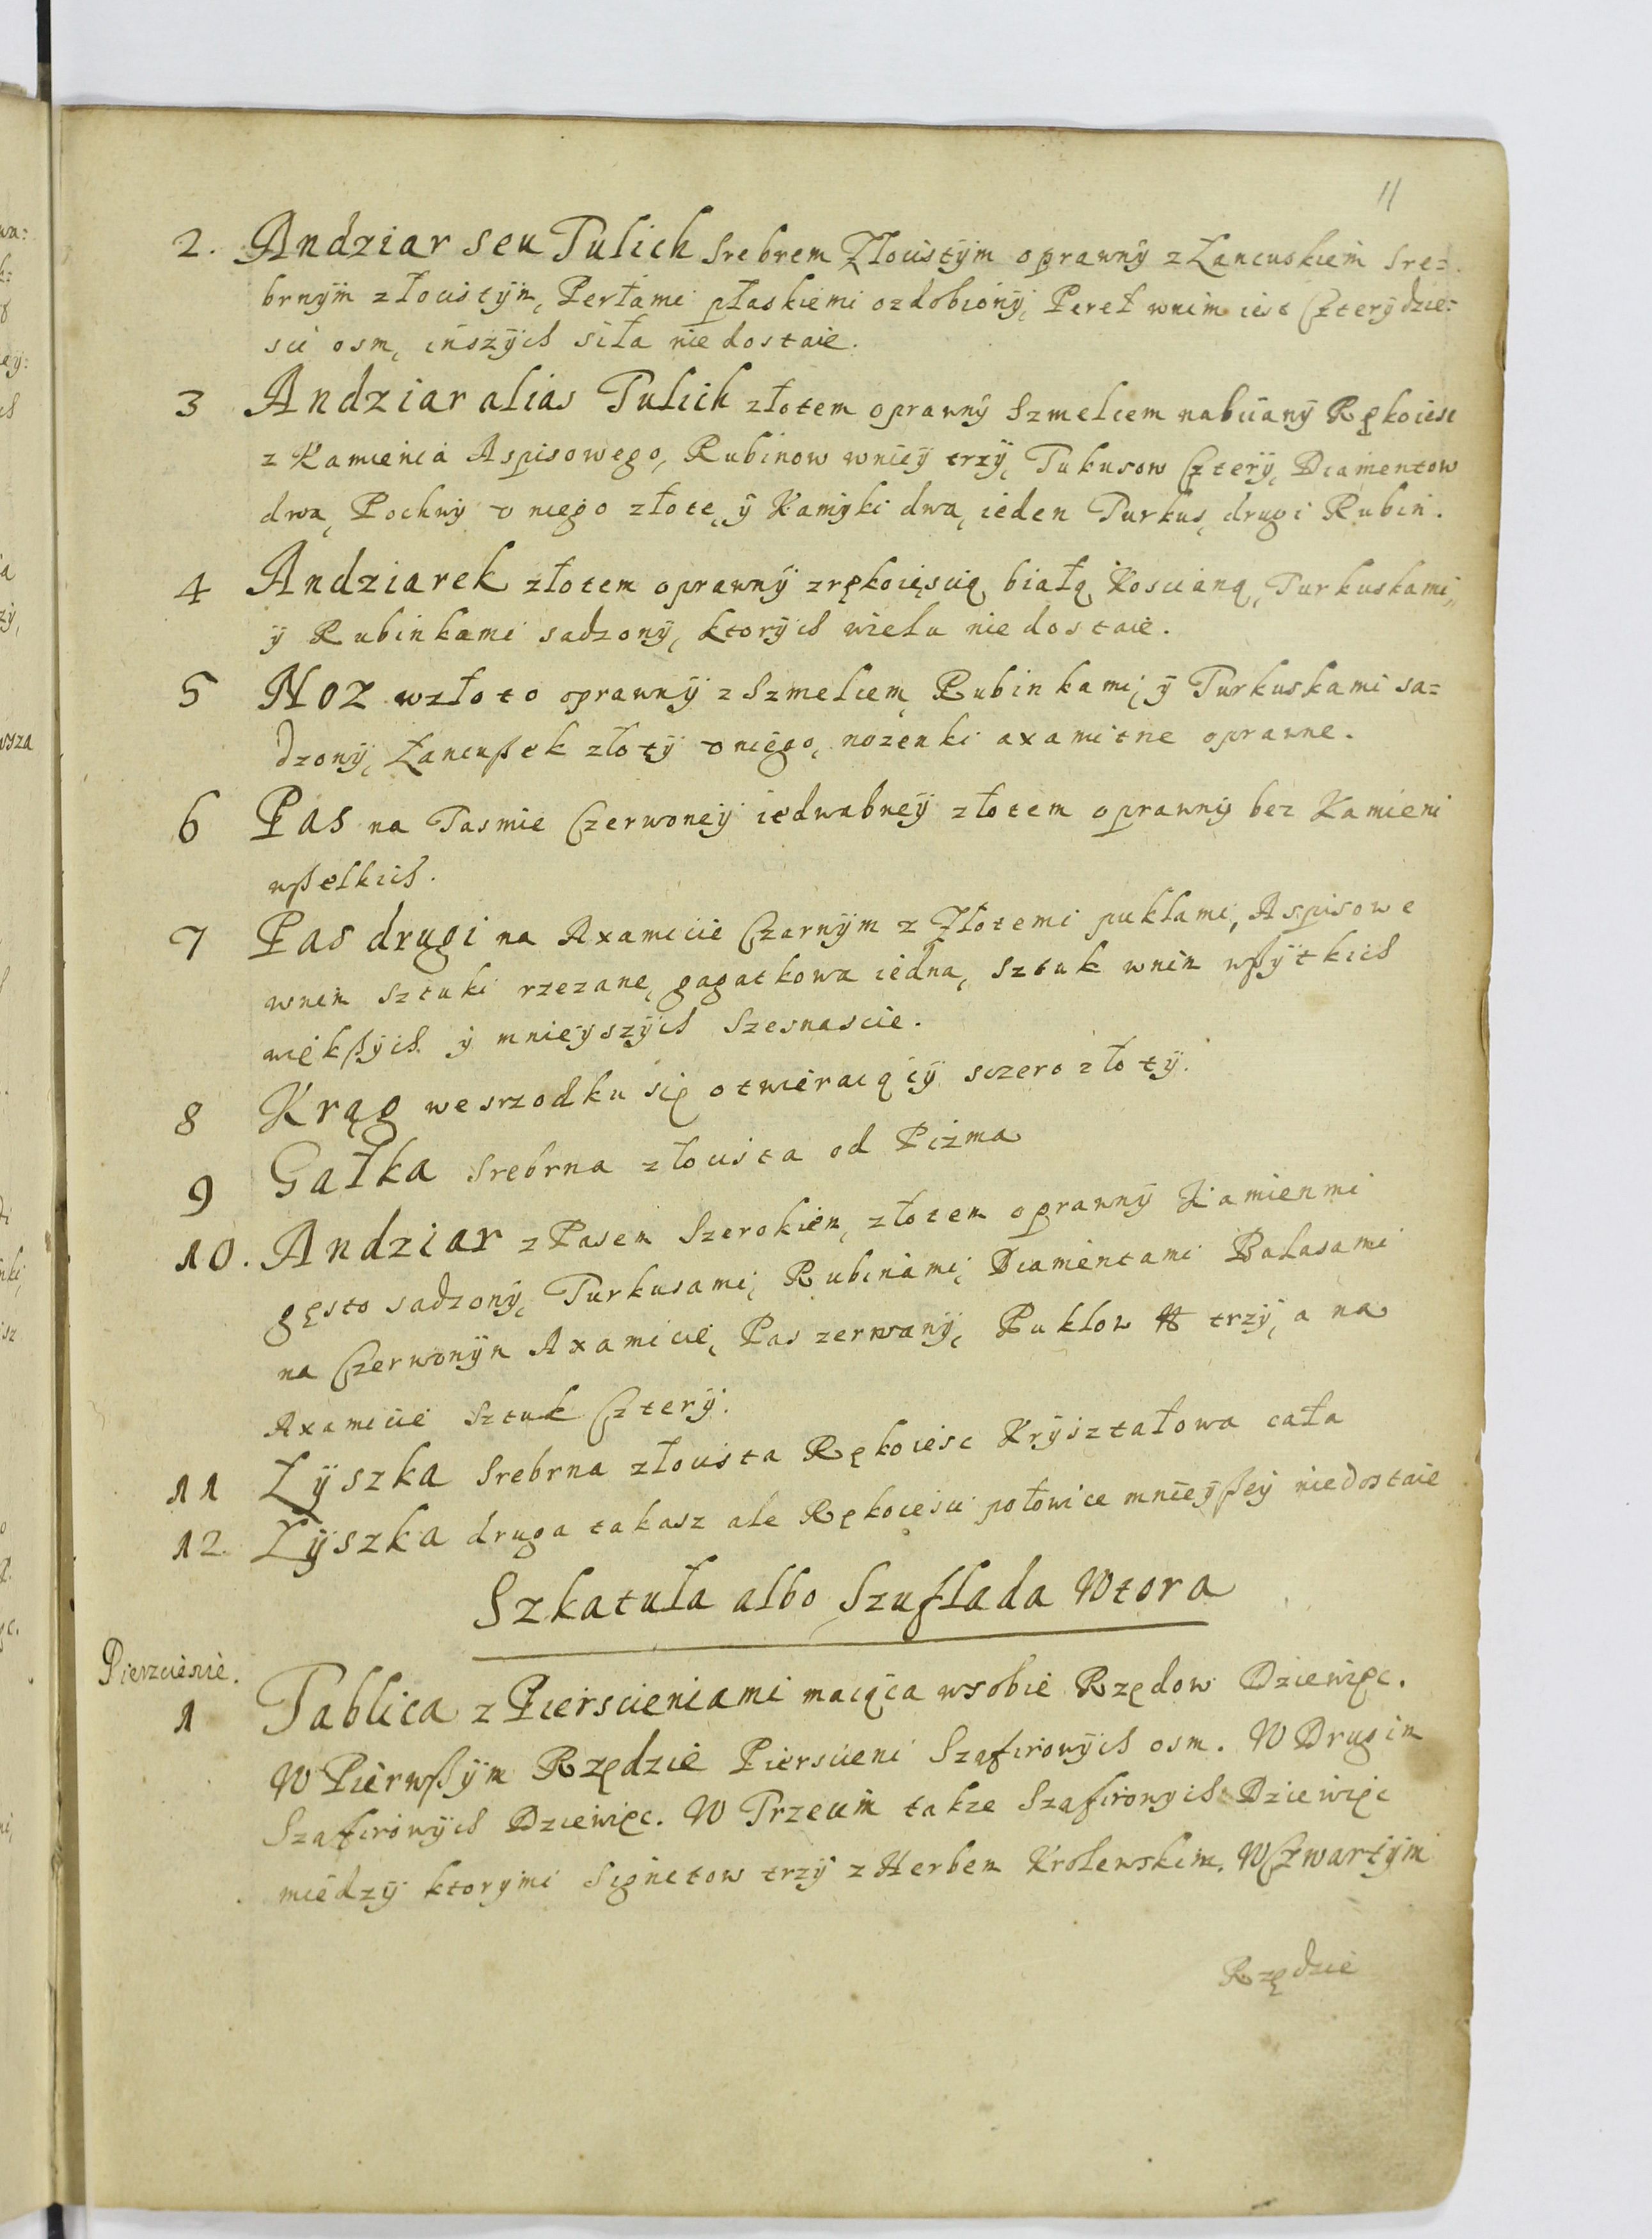 11
2. Andziar seu Tulich srebrem Złoċistÿm oprawnÿ z Łancuskiem sre=
brnÿm złocistÿm, Perłami płaskiemi ozdobionÿ, Pereł wnim iest Czterÿdzie=
sci osm, inszÿch siła nie dostaie.
3 Andziar alias Tulich złotem oprawnÿ Szmelcem nabiianÿ Rękoiesc
z Kamienia Aspisowego, Rubinow wnieÿ trzÿ, Tukusow Czterÿ, Diamentow
dwa, Pochwÿ v niego złote, ÿ Kamÿki dwa, ieden Turkus, drugi Rubin.
4 Andziarek złotem oprawnÿ zrękoięscią białą Koscianą, Turkuskami,
ÿ Rubinkami sadzonÿ, ktorÿch wielu niedostaie.
5 Noz wzłoto oprawnÿ z Szmelcem, Rubinkami, ÿ Turkuskami sa=
dzonÿ, Łancußek złotÿ v niego, nozenki axamitne oprawne.
6 Pas na Tasmie Czerwoneÿ iedwabneÿ złotem oprawnÿ bez Kamieni
wßelkich.
7 Pas drugi na Axamicie Czarnÿm z Złotemi puklami, Aspisowe
wnim sztuki rzezane, gagatkowa iedna, sztuk wnim wßÿtkich
więkßÿch ÿ mnieÿszÿch Szesnascie.
8 Krąg wesrzodku się otwieraiącÿ sczero złotÿ.
9 Gałka srebrna złocista od Piżma
10. Andziar z Pasem Szerokiem, złotem oprawnÿ Kamienmi
gęsto sadzonÿ, Turkusami, Rubinami, Diamentami Balasami
na Czerwonÿm Axamicie, Pas zerwanÿ, Puklow trzÿ, a na
Axamicie Sztuk Czterÿ.
11 Łÿszka srebrna złocista Rękoiesc Krÿształowa cała
12. Łÿszka druga takasz ale Rękoiesci połowice mnieÿßeÿ niedostaie
Szkatuła albo Szuflada Wtora
Pierzcienie.
1 Tablica z Pierscieniami maiąca wsobie Rzędow Dziewięc.
W Pierwßÿm Rzędzie Pierscieni Szafirowÿch osm. W Drugim
Szafirowÿch Dziewięc. W Trzecim takze Szafirowych Dziewięc
miedzÿ ktorymi Signetow trzÿ z Herbem Krolewskim. W Czwartÿm
Rzędzie